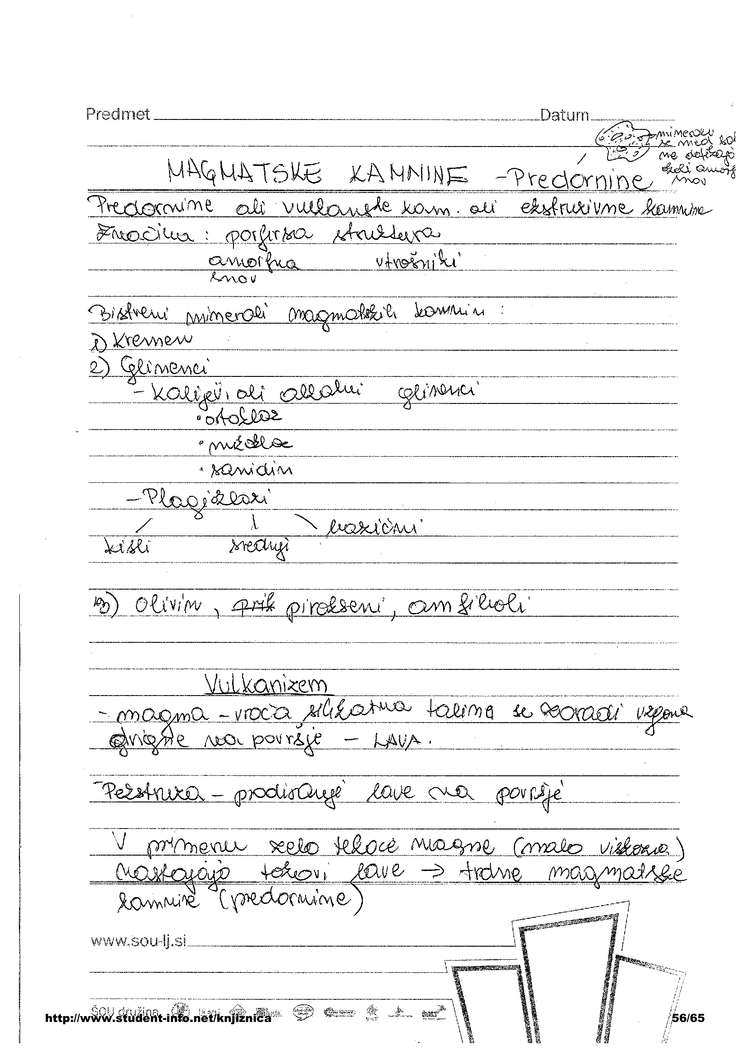 Predmet
Datum
minerali
se med sabo
ne dotikajo
okoli amorf.
snov
MAGMATSKE KAMNINE - Predornine
Predornine ali vulkanske kam. ali ekstruzivne kamnine
Značilna : porfirska struktura
amorfna vtrošniki
snov
Bistveni minerali magmatskih kamnin :
1) Kremen
2) Glinenci
- kalijevi ali alkalni glinenci
• ortoklaz
• mikroklin
• sanidin
- Plagioklazi
kisli srednji bazični
3) Olivin, pirokseni, amfiboli
Vulkanizem
- magma - vroča silikatna talina se zaradi vzgona
dvigne na površje - LAVA.
- Ekstruzija - prodiranje lave na površje
V primeru zelo tekoče magme (malo viskozna)
nastajajo tokovi lave → trdne magmatske
kamnine (predornine)
www.sou-lj.si
ŠOU družina
http://www.student-info.net/knjiznica
56/65